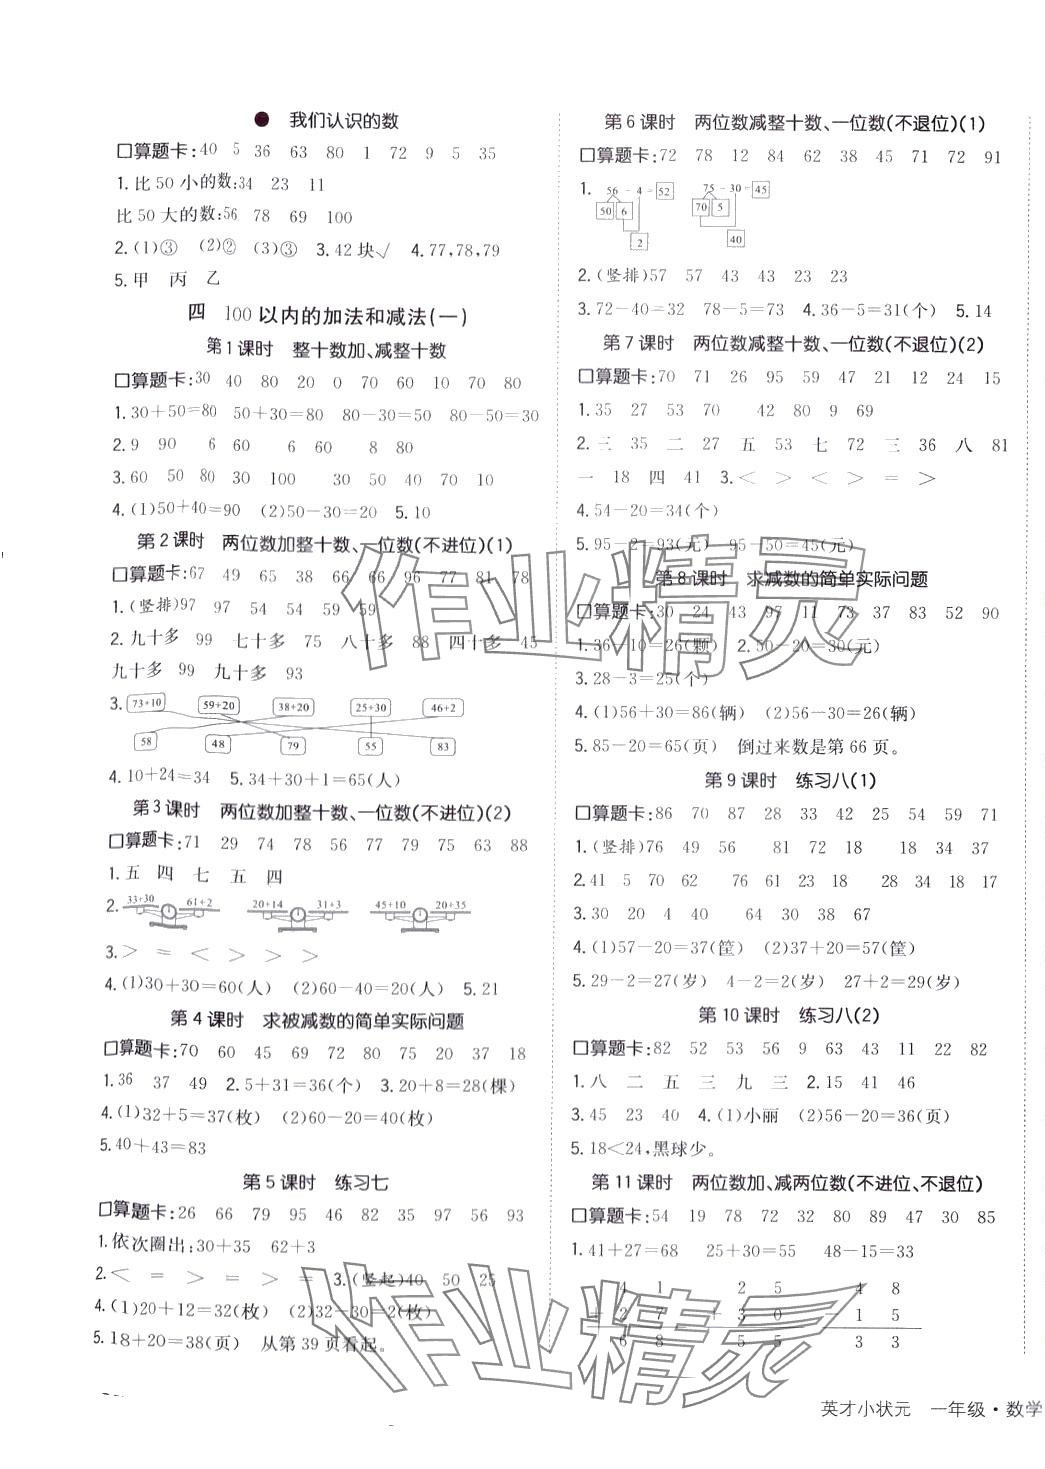 ● 我们认识的数
口算题卡:40 5 36 63 80 1 72 9 5 35
1.比50小的数:34 23 11
比50大的数:56 78 69 100
2.(1)③ (2)② (3)③ 3.42块√ 4.77,78,79
5.甲 丙 乙
四 100以内的加法和减法(一)
第1课时 整十数加、减整十数
口算题卡:30 40 80 20 0 70 60 10 70 80
1.30+50=80 50+30=80 80-30=50 80-50=30
2.9 90 6 60 6 60 8 80
3.60 50 80 30 100 30 50 40 70 10
4.(1)50+40=90 (2)50-30=20 5.10
第2课时 两位数加整十数、一位数(不进位)(1)
口算题卡:67 49 65 38 66 66 96 77 81 78
1.(竖排)97 97 54 54 59 59
2.九十多 99 七十多 75 八十多 88 四十多 45
九十多 99 九十多 93
3. 73+10 59+20 38+20 25+30 46+2
58 48 79 55 83
4.10+24=34 5.34+30+1=65(人)
第3课时 两位数加整十数、一位数(不进位)(2)
口算题卡:71 29 74 78 56 77 79 75 63 88
1.五 四 七 五 四
2. 33+30 61+2 20+14 31+3 45+10 20+35
3.> = < > > >
4.(1)30+30=60(人) (2)60-40=20(人) 5.21
第4课时 求被减数的简单实际问题
口算题卡:70 60 45 69 72 80 75 20 37 18
1.36 37 49 2.5+31=36(个) 3.20+8=28(棵)
4.(1)32+5=37(枚) (2)60-20=40(枚)
5.40+43=83
第5课时 练习七
口算题卡:26 66 79 95 46 82 35 97 56 93
1.依次圈出:30+35 62+3
2.< = > = > > 3.(竖起)40 50 25
4.(1)20+12=32(枚) (2)32-30=2(枚)
5.18+20=38(页) 从第39页看起。
第6课时 两位数减整十数、一位数(不退位)(1)
口算题卡:72 78 12 84 62 38 45 71 72 91
1. 56-4=52 75-30=45
50 6 70 5
2 40
2.(竖排)57 57 43 43 23 23
3.72-40=32 78-5=73 4.36-5=31(个) 5.14
第7课时 两位数减整十数、一位数(不退位)(2)
口算题卡:70 71 26 95 59 47 21 12 24 15
1.35 27 53 70 42 80 9 69
2.三 35 二 27 五 53 七 72 三 36 八 81
一 18 四 41 3.< > < > = >
4.54-20=34(个)
5.95-2=93(元) 95-50=45(元)
第8课时 求减数的简单实际问题
口算题卡:30 24 43 97 11 73 37 83 52 90
1.36-10=26(颗) 2.50-20=30(元)
3.28-3=25(个)
4.(1)56+30=86(辆) (2)56-30=26(辆)
5.85-20=65(页) 倒过来数是第66页。
第9课时 练习八(1)
口算题卡:86 70 87 28 33 42 25 54 59 71
1.(竖排)76 49 56 81 72 18 18 34 37
2.41 5 70 62 76 61 23 18 28 34 18 17
3.30 20 4 40 64 30 38 67
4.(1)57-20=37(筐) (2)37+20=57(筐)
5.29-2=27(岁) 4-2=2(岁) 27+2=29(岁)
第10课时 练习八(2)
口算题卡:82 52 53 56 9 63 43 11 22 82
1.八 二 五 三 九 三 2.15 41 46
3.45 23 40 4.(1)小丽 (2)56-20=36(页)
5.18<24,黑球少。
第11课时 两位数加、减两位数(不进位、不退位)
口算题卡:54 19 78 72 32 80 89 47 30 85
1.41+27=68 25+30=55 48-15=33
4 1 2 5 4 8
+ 2 7 + 3 0 - 1 5
6 8 5 5 3 3
作业精灵
作业精灵
英才小状元 一年级·数学